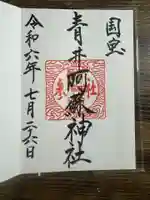 国宝
青井阿蘇神社
令和六年 七月二十六日